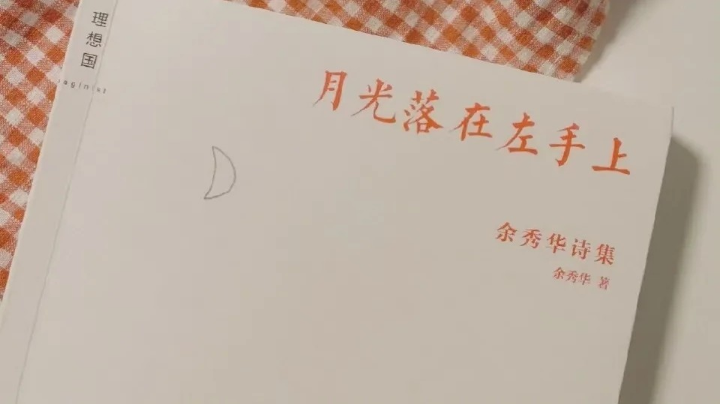 理想国
imaginist
月光落在左手上
余秀华诗集
余秀华 著